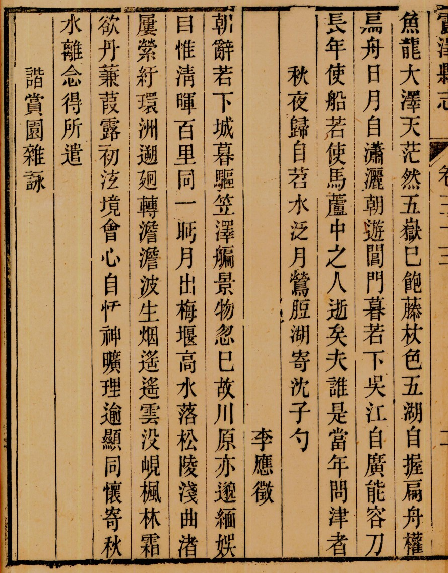 魚龍大澤天茫然五嶽已飽藤杖色五湖自握扁舟權
扁舟日月自瀟灑朝遊閶門暮若下吳江自廣能容刀
長年使船若使馬蘆中之人逝矣夫誰是當年問津者
秋夜歸自苕水泛月鶯脰湖寄沈子勺
李應徵
朝辭若下城暮驅笠澤艑景物忽已故川原亦邈緬娛
目惟清暉百里同一眄月出梅堰高水落松陵淺曲渚
屢縈紆環洲遡廻轉澹澹波生烟遙遙雲没峴楓林霜
欲丹蒹葭露初泫境會心自怀神曠理逾顯同懷寄秋
水離念得所遣
諧賞園雜詠